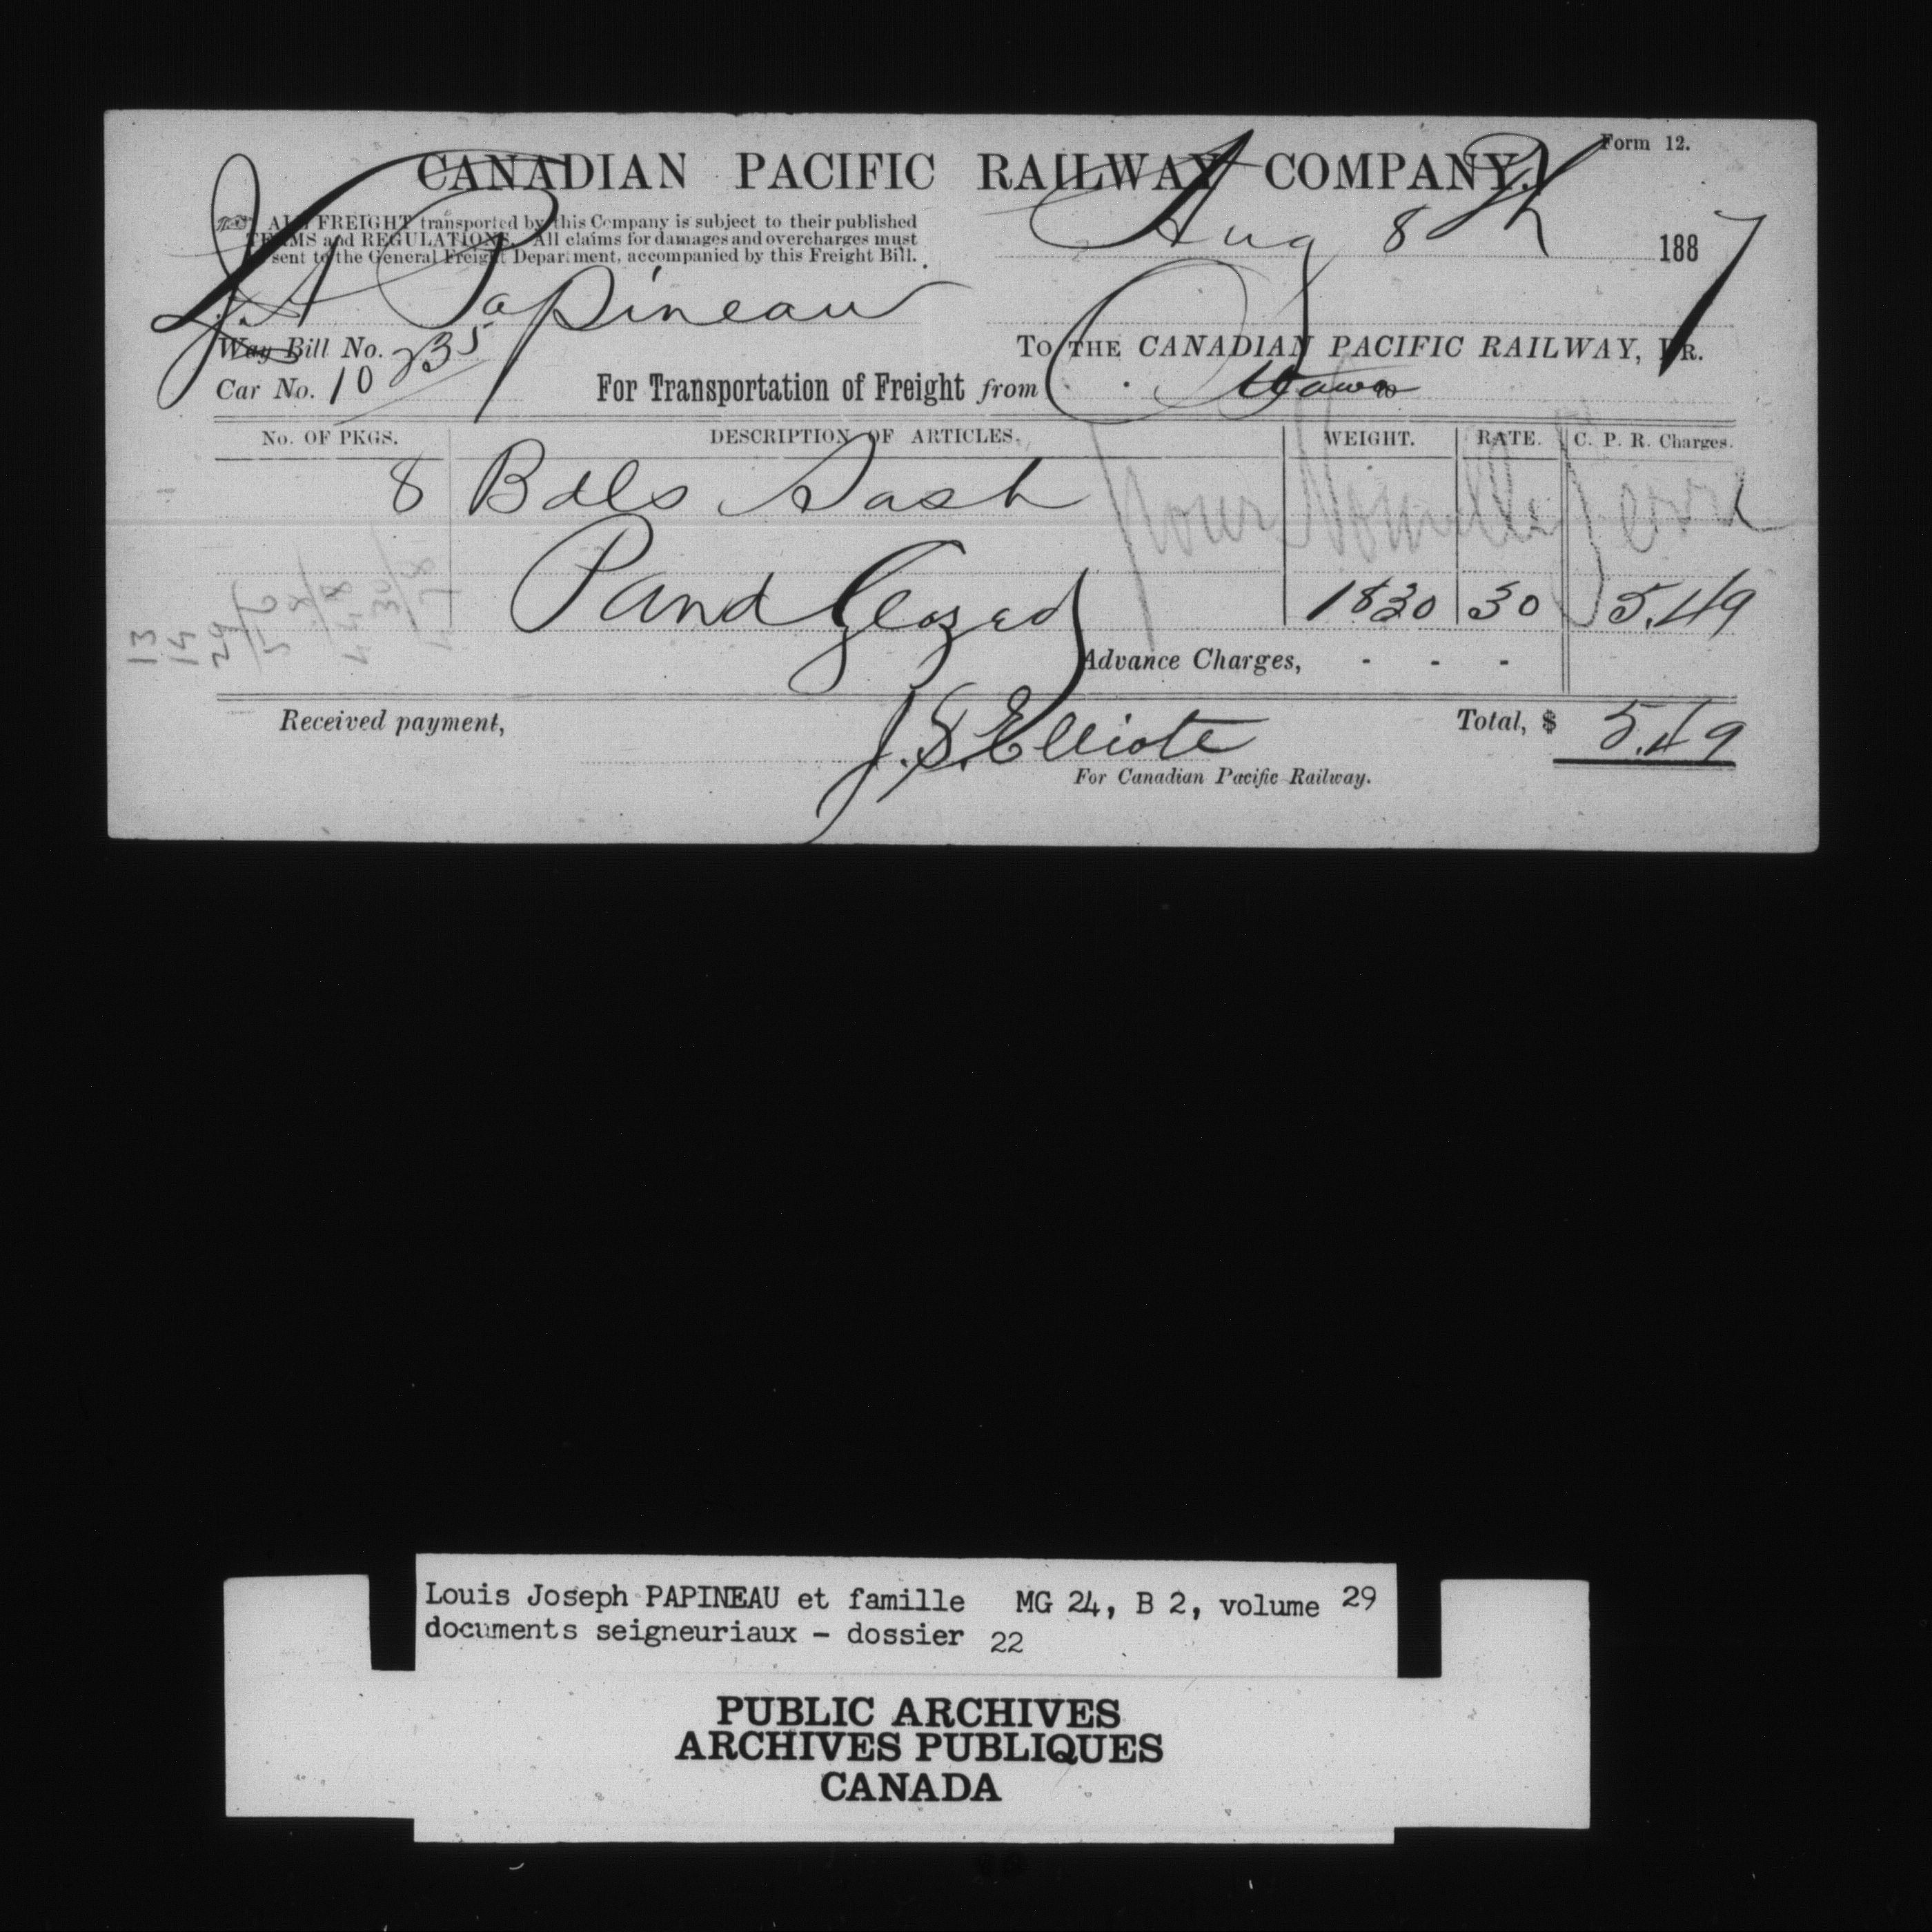 Form 12.
CANADIAN PACIFIC RAILWAY COMPANY.
ALL FREIGHT transported by this Company is subject to their published
TERMS and REGULATIONS. All claims for damages and overcharges must
sent to the General Freight Department, accompanied by this Freight Bill.
Aug 8th 1887
Papineau
Way Bill No. 235
To THE CANADIAN PACIFIC RAILWAY, DR.
Car No. 10
For Transportation of Freight from Ottawa
No. OF PKGS. DESCRIPTION OF ARTICLES. WEIGHT. RATE. C. P. R. Charges.
8 Bdls Sash
pour Nouvelle Serre
P and Glazed 1830 30 5.49
Advance Charges, - - -
Received payment, J.S. Elliote Total, $ 5.49
For Canadian Pacific Railway.
13
14
29
Louis Joseph PAPINEAU et famille MG 24, B 2, volume 29
documents seigneuriaux - dossier 22
PUBLIC ARCHIVES
ARCHIVES PUBLIQUES
CANADA